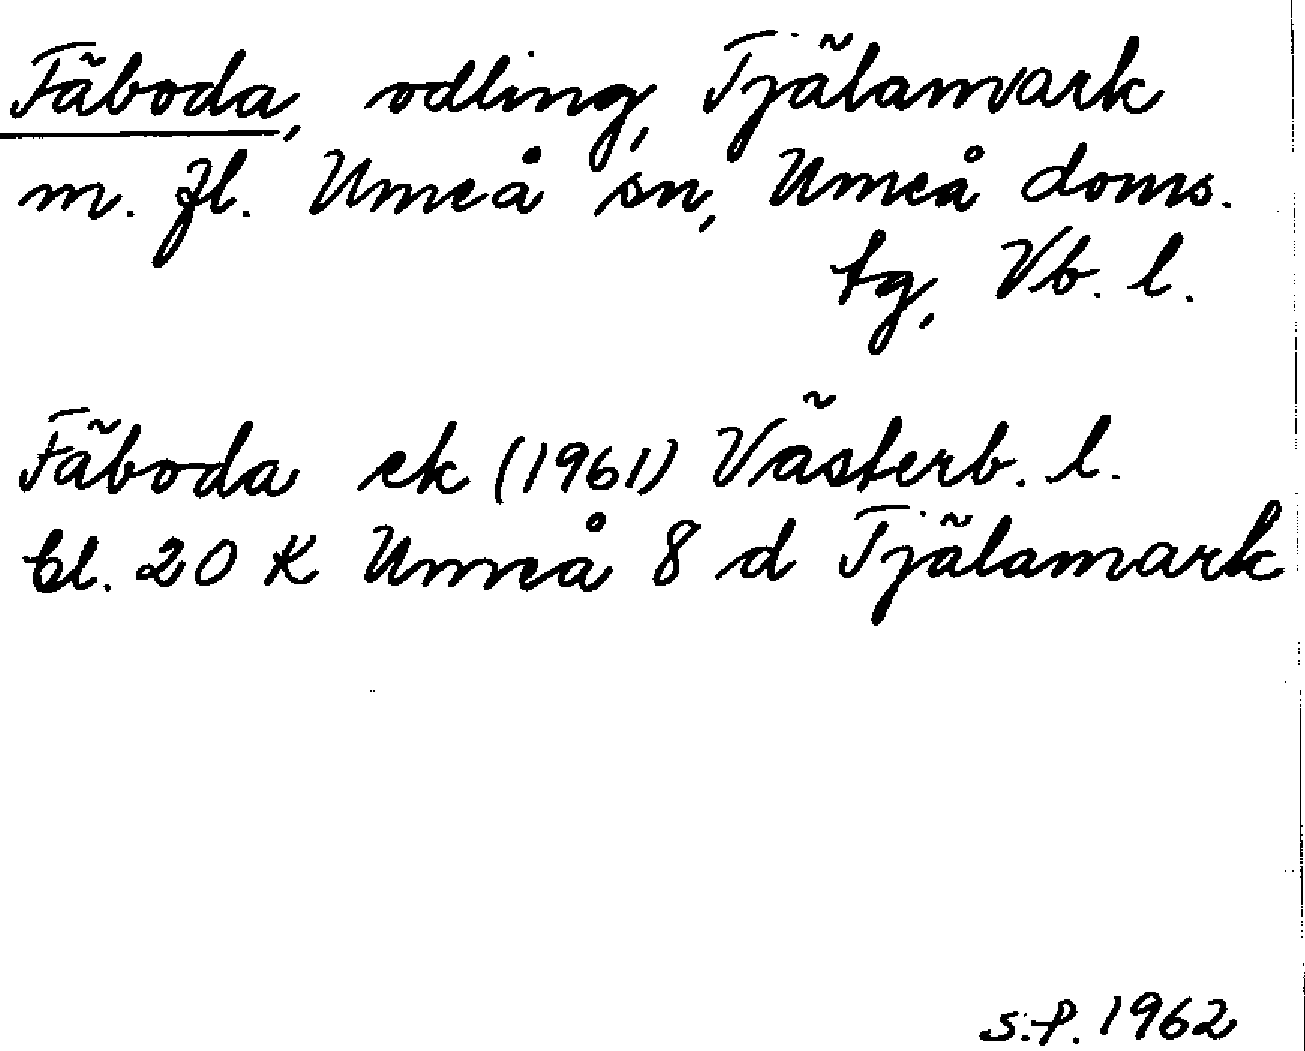 Fäboda, odling, Tjälamark
m. fl. Umeå sn, Umeå doms.
tg, Vb. l.
Fäboda ek (1961) Västerb. l.
bl. 20 K Umeå 8 d Tjälamark
S.P. 1962